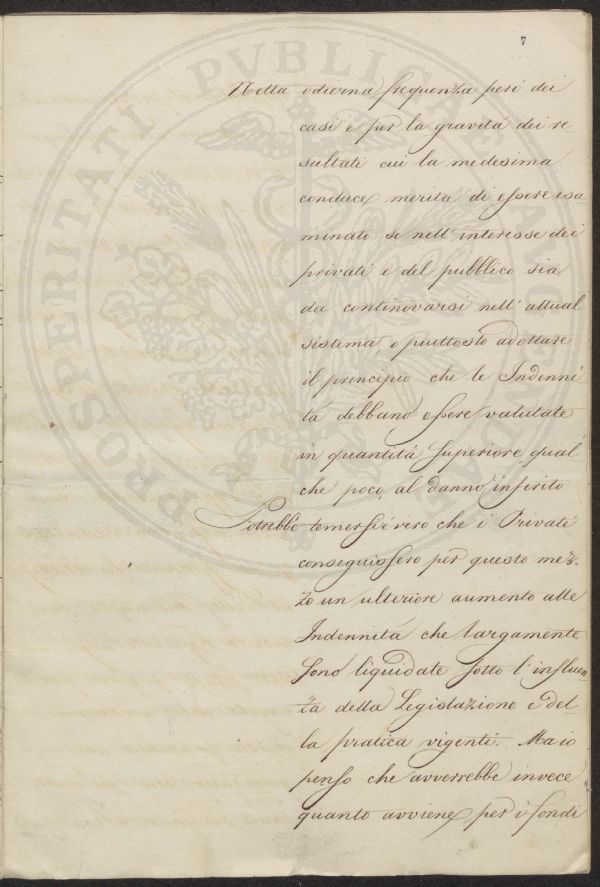 7
Nella odierna frequenza però dei
casi e per la gravità dei re
sultati cui la medesima
conduce, merita di essere esa
minato se nell'interesse dei
privati e del pubblico sia
da continovarsi nell'attual
sistema, o piuttosto adottare
il principio che le Indenni
tà debbano essere valutate
in quantità superiore qual
che poco, al danno inferito
Potrebbe temersi è vero che i Privati
conseguissero per questo mez-
zo un ulteriore aumento alle
Indennità che largamente
sono liquidate sotto l'influen
za della Legislazione e del-
la pratica vigenti. Ma io
penso che avverrebbe invece
quanto avviene per i fondi
PROSPERITATI PVBLICAE